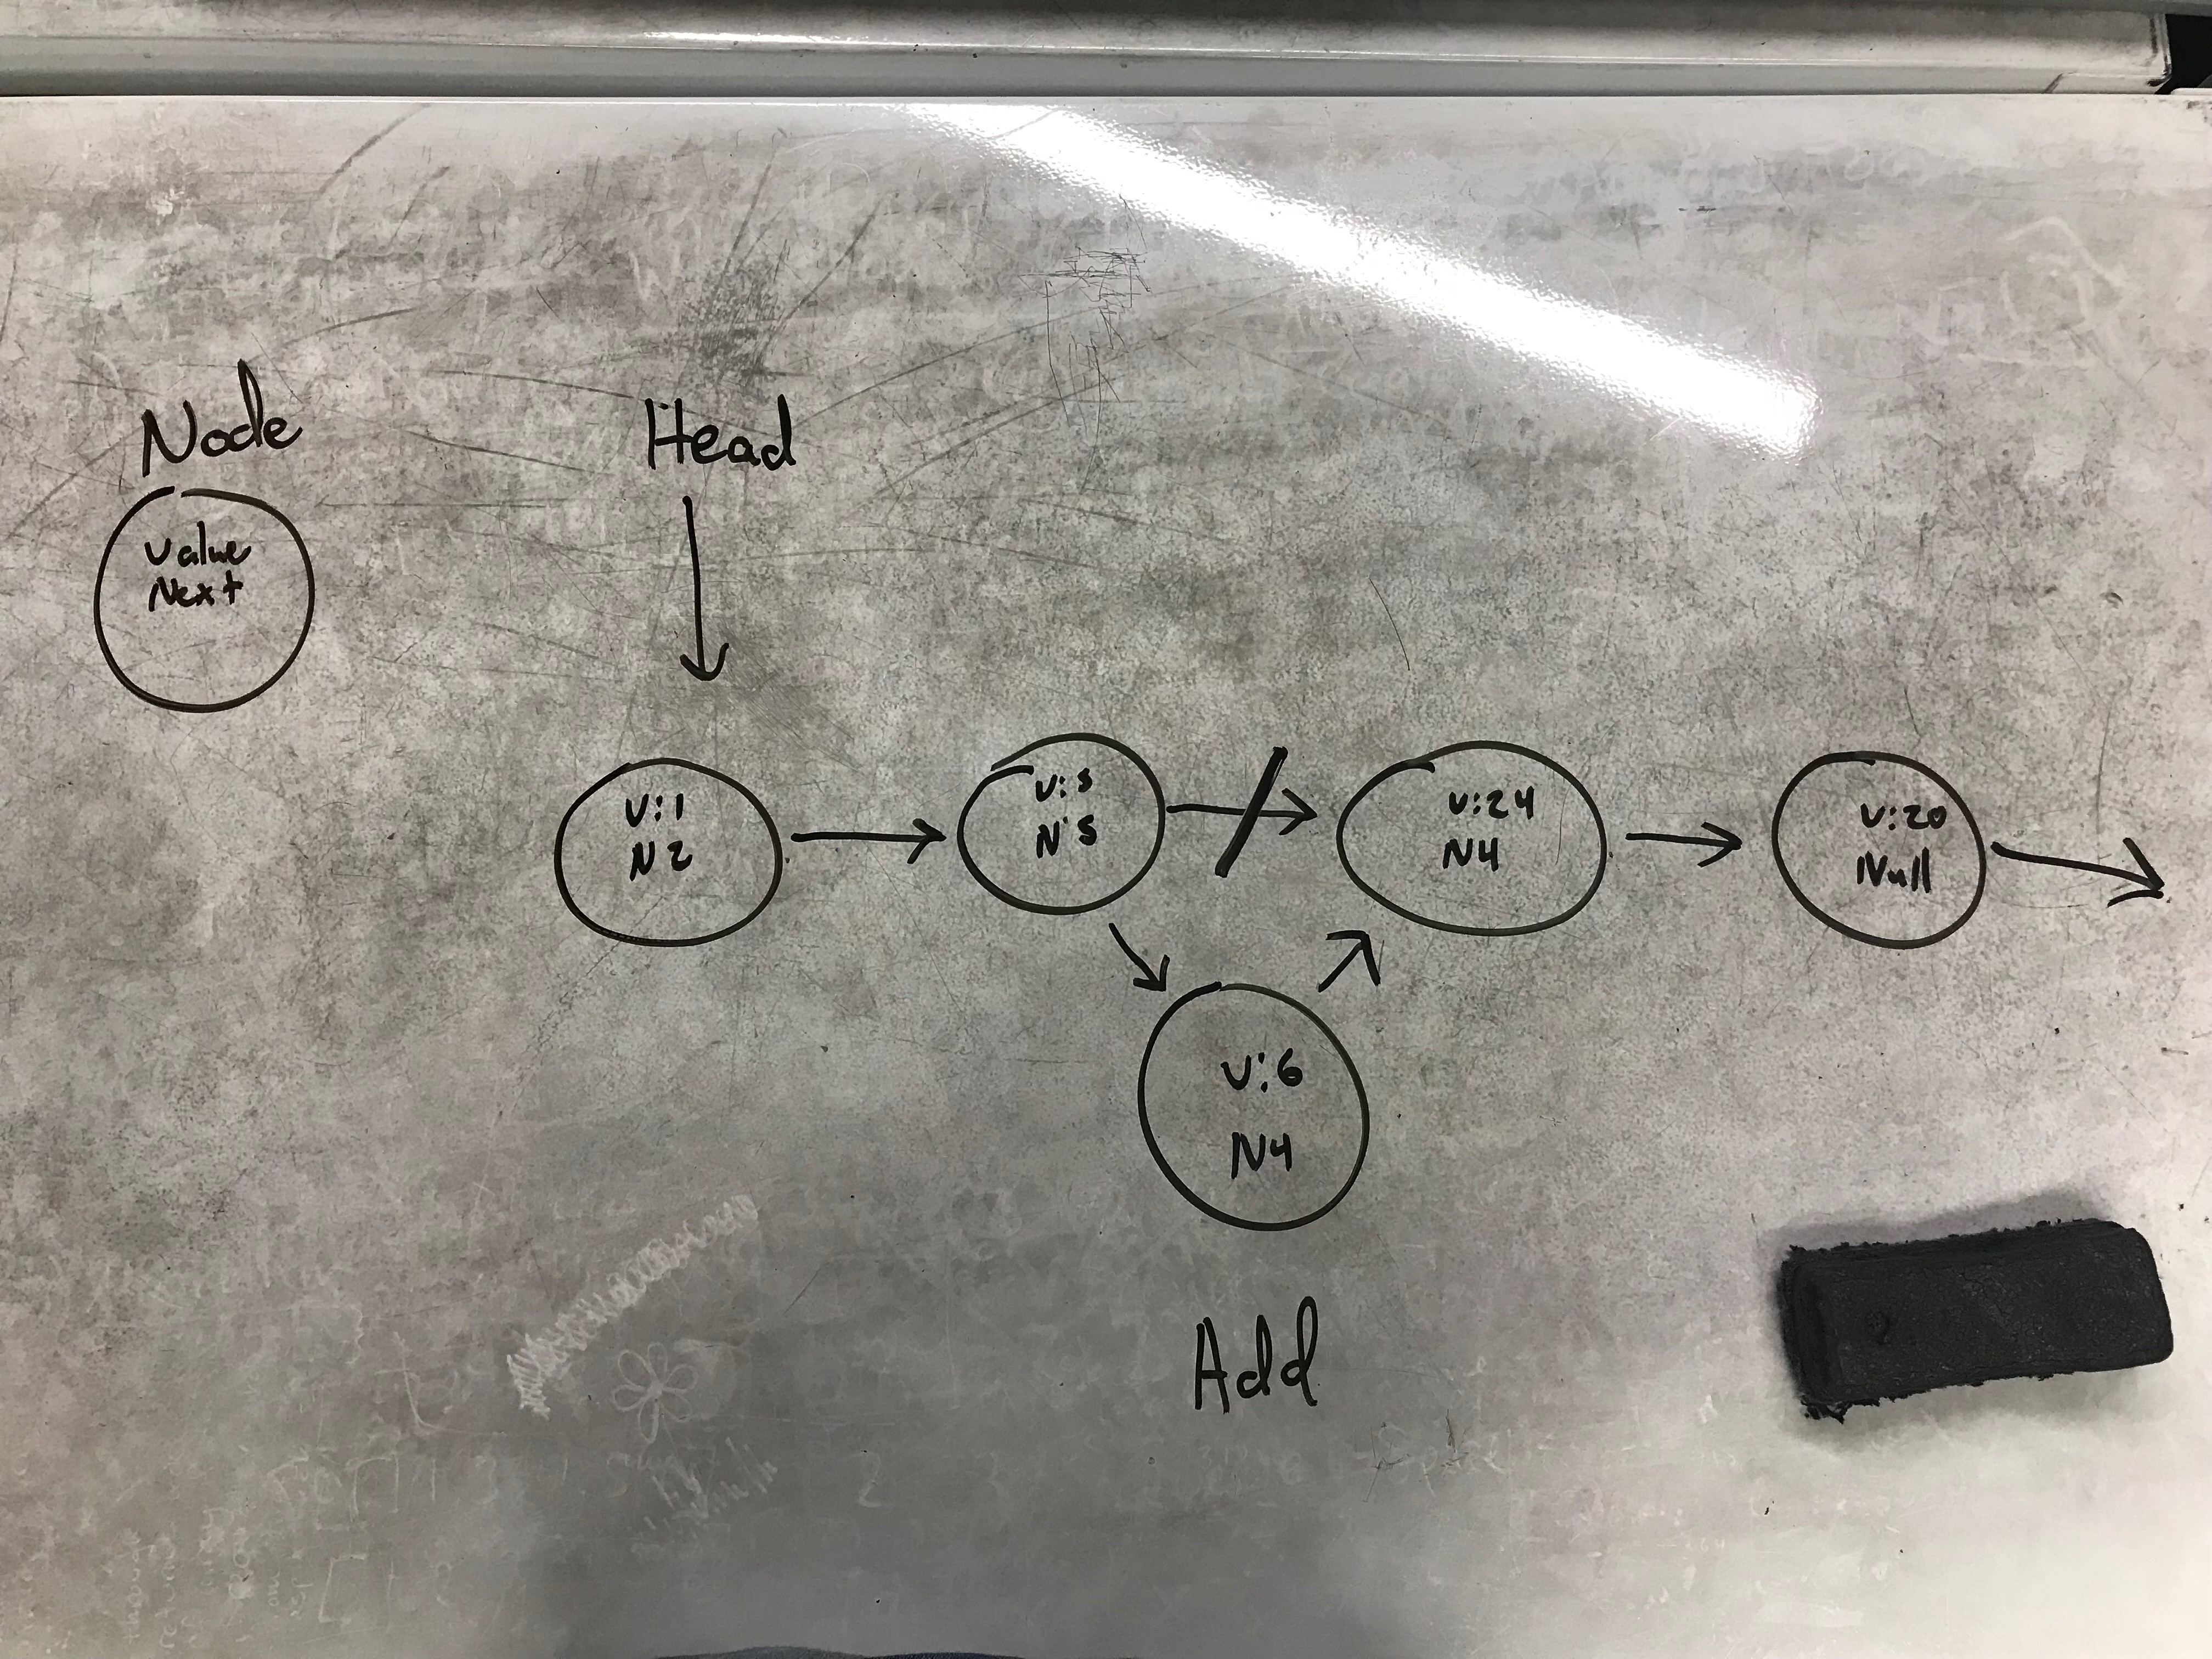 Node
Head
Value
Next
V:1
N2
V:5
N:5
V:24
N4
V:20
Null
V:6
N4
Add